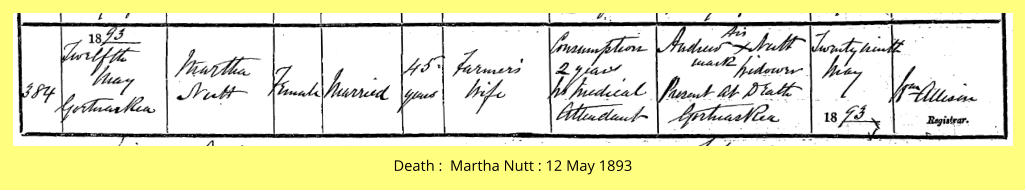 384
1893
Twelfth
May
Gortnaskea
Martha
Nutt
Female
Married
45
years
Farmer's
Wife
Consumption
2 years
no medical
Attendant
his
Andrew x Nutt
mark
widower
Present at Death
Gortnaskea
Twenty ninth
May
1893
Wm Allison
Registrar.
Death : Martha Nutt : 12 May 1893